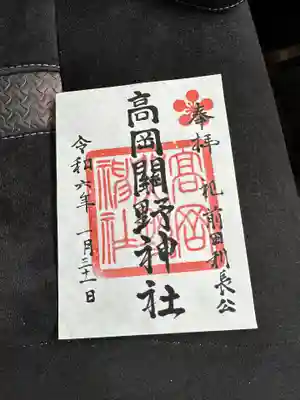 奉拝
祀 前田利長公
高岡關野神社
令和六年 一月三十一日